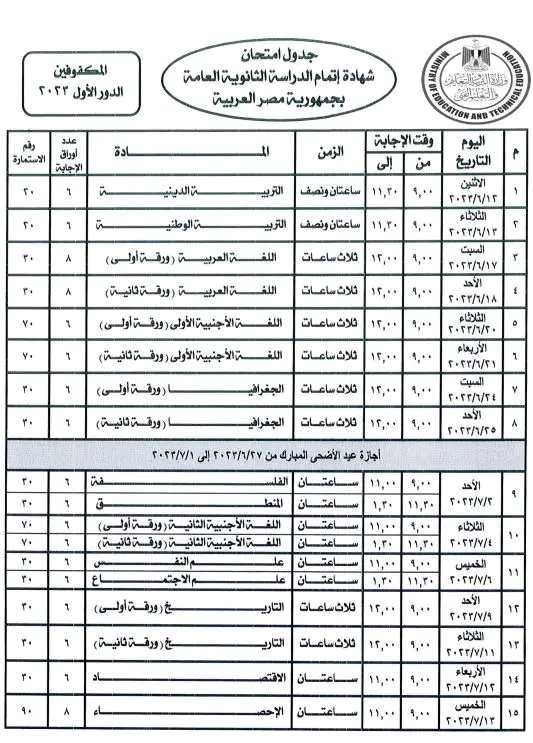 جدول امتحان
شهادة إتمام الدراسة الثانوية العامة
بجمهورية مصر العربية
المكفوفين
الدور الأول ٢٠٢٣
وزارة التربية والتعليم
والتعليم الفني
MINISTRY OF EDUCATION AND TECHNICAL EDUCATION
م | اليوم التاريخ | وقت الإجابة من | إلى | الزمن | المــادة | عدد أوراق الإجابة | رقم الاستمارة
١ | الاثنين ٢٠٢٣/٦/١٢ | ٩,٠٠ | ١١,٣٠ | ساعتان ونصف | التربية الدينية | ٦ | ٢٠
٢ | الثلاثاء ٢٠٢٣/٦/١٣ | ٩,٠٠ | ١١,٣٠ | ساعتان ونصف | التربية الوطنية | ٦ | ٢٠
٣ | السبت ٢٠٢٣/٦/١٧ | ٩,٠٠ | ١٢,٠٠ | ثلاث ساعات | اللغة العربية (ورقة أولى) | ٨ | ٣٠
٤ | الأحد ٢٠٢٣/٦/١٨ | ٩,٠٠ | ١٢,٠٠ | ثلاث ساعات | اللغة العربية (ورقة ثانية) | ٨ | ٣٠
٥ | الثلاثاء ٢٠٢٣/٦/٢٠ | ٩,٠٠ | ١٢,٠٠ | ثلاث ساعات | اللغة الأجنبية الأولى (ورقة أولى) | ٦ | ٧٠
٦ | الأربعاء ٢٠٢٣/٦/٢١ | ٩,٠٠ | ١٢,٠٠ | ثلاث ساعات | اللغة الأجنبية الأولى (ورقة ثانية) | ٦ | ٧٠
٧ | السبت ٢٠٢٣/٦/٢٤ | ٩,٠٠ | ١٢,٠٠ | ثلاث ساعات | الجغرافيا (ورقة أولى) | ٦ | ٣٠
٨ | الأحد ٢٠٢٣/٦/٢٥ | ٩,٠٠ | ١٢,٠٠ | ثلاث ساعات | الجغرافيا (ورقة ثانية) | ٦ | ٣٠
أجازة عيد الأضحى المبارك من ٢٠٢٣/٦/٢٧ إلى ٢٠٢٣/٧/١
٩ | الأحد ٢٠٢٣/٧/٢ | ٩,٠٠ | ١١,٠٠ | ساعتان | الفلسفة | ٦ | ٣٠
١١,٣٠ | ١,٣٠ | ساعتان | المنطق | ٦ | ٣٠
١٠ | الثلاثاء ٢٠٢٣/٧/٤ | ٩,٠٠ | ١١,٠٠ | ساعتان | اللغة الأجنبية الثانية (ورقة أولى) | ٦ | ٧٠
١١,٣٠ | ١,٣٠ | ساعتان | اللغة الأجنبية الثانية (ورقة ثانية) | ٦ | ٧٠
١١ | الخميس ٢٠٢٣/٧/٦ | ٩,٠٠ | ١١,٠٠ | ساعتان | علم النفس | ٦ | ٣٠
١١,٣٠ | ١,٣٠ | ساعتان | علم الاجتماع | ٦ | ٣٠
١٢ | الأحد ٢٠٢٣/٧/٩ | ٩,٠٠ | ١٢,٠٠ | ثلاث ساعات | التاريخ (ورقة أولى) | ٦ | ٣٠
١٣ | الثلاثاء ٢٠٢٣/٧/١١ | ٩,٠٠ | ١٢,٠٠ | ثلاث ساعات | التاريخ (ورقة ثانية) | ٦ | ٣٠
١٤ | الأربعاء ٢٠٢٣/٧/١٢ | ٩,٠٠ | ١١,٠٠ | ساعتان | الاقتصاد | ٦ | ٣٠
١٥ | الخميس ٢٠٢٣/٧/١٣ | ٩,٠٠ | ١١,٠٠ | ساعتان | الإحصاء | ٨ | ٩٠